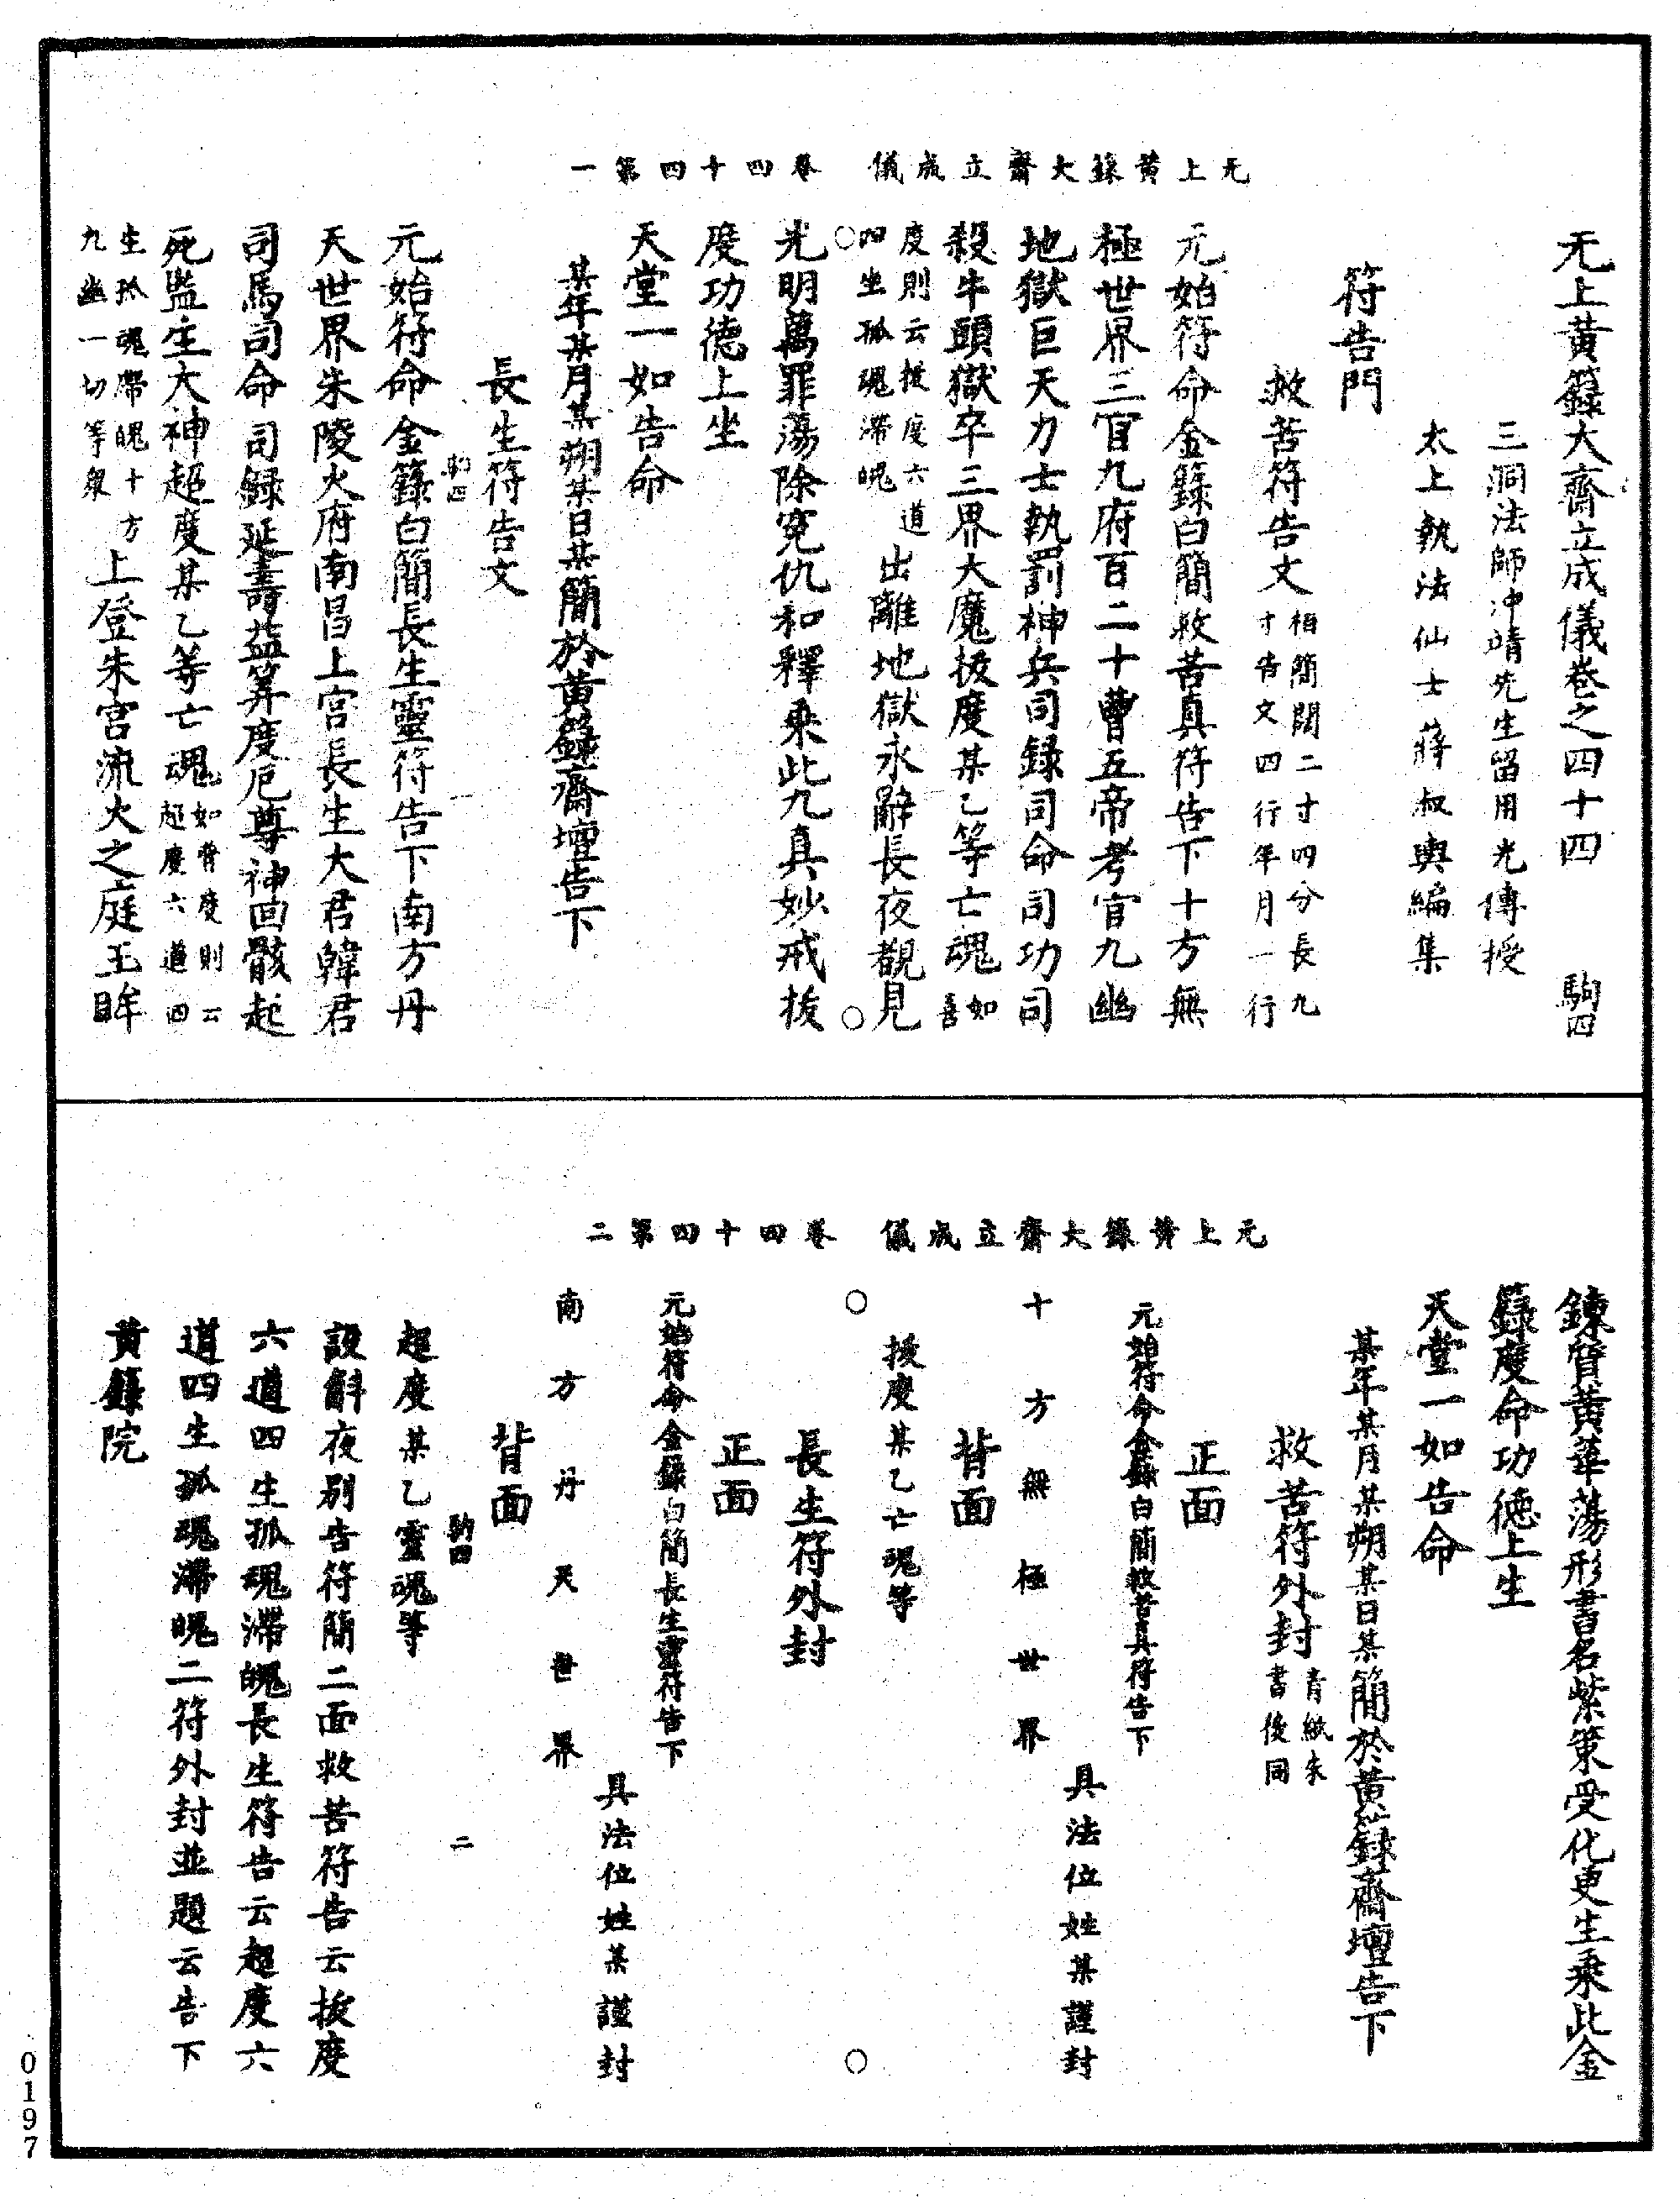 无上黃籙大齋立成儀 卷四十四第一
无上黃籙大齋立成儀卷之四十四 駒四
三洞法師冲靖先生留用光傳授
太上執法仙士蔣叔輿編集
符告門
救苦符告文 栢簡闊二寸四分長九寸告文四行年月一行
元始符命金籙白簡救苦真符告下十方無
極世界三官九府百二十曹五帝考官九幽
地獄巨天力士執罰神兵司錄司命司功司
殺牛頭獄卒三界大魔拔度某乙等亡魂 如普
度則云拔度六道四生孤魂滯魄 出離地獄永辭長夜觀見
光明萬罪蕩除寃仇和釋乘此九真妙戒拔
度功德上坐
天堂一如告命
某年某月某朔某日某簡於黃籙齋壇告下
長生符告文
駒四 一
元始符命金籙白簡長生靈符告下南方丹
天世界朱陵火府南昌上宮長生大君韓君
司馬司命司録延壽益筭度厄尊神回骸起
死監生大神超度某乙等亡魂 如普度則云超度六道四
生孤魂滯魄十方九幽一切等衆 上登朱宮流火之庭玉眸
无上黃籙大齋立成儀 卷四十四第二
鍊質黃華蕩形書名紫策受化更生乘此金
籙度命功德上生
天堂一如告命
某年某月某朔某日某簡於黃籙齋壇告下
救苦符外封 青紙朱書後同
正面
元始符命金籙白簡救苦真符告下
具法位姓某謹封
十方無極世界
背面
拔度某乙亡魂等
長生符外封
正面
元始符命金籙白簡長生靈符告下
具法位姓某謹封
南方丹天世界
背面
駒四 二
超度某乙靈魂等
設斛夜別告符簡二面救苦符告云拔度
六道四生孤魂滯魄長生符告云超度六
道四生孤魂滯魄二符外封並題云告下
黃籙院
0197